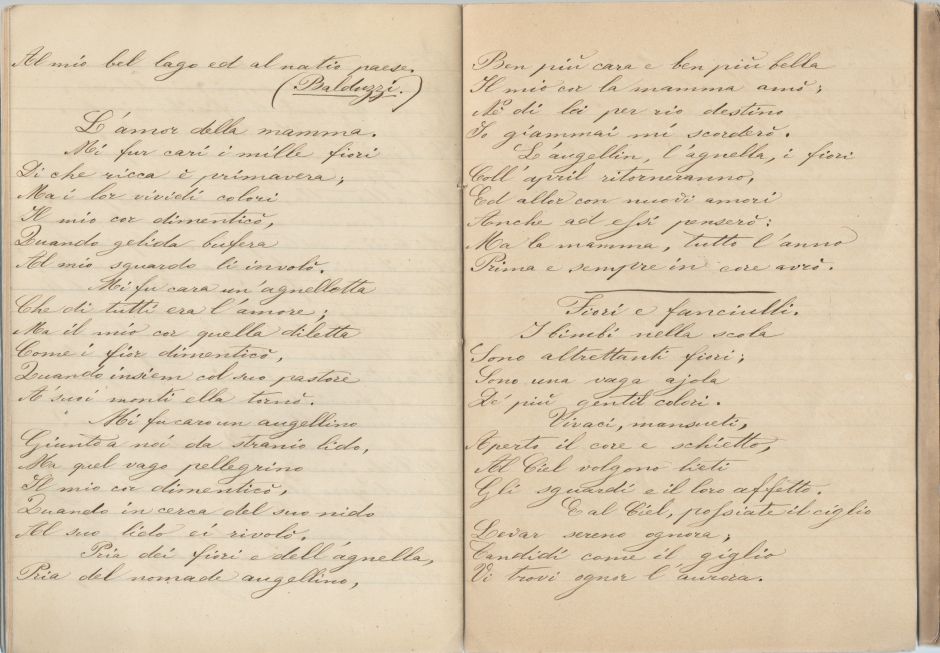 Al mio bel lago ed al natio paese.
(Balduzzi.)
L'amor della mamma.
Mi fur cari i mille fiori
Di che ricca è primavera;
Ma i lor vividi colori
Il mio cor dimenticò,
Quando gelida bufera
Al mio sguardo li involò.
Mi fu cara un'agnelletta
Che di tutti era l'amore;
Ma il mio cor quella diletta
Come i fior dimenticò,
Quando insiem col suo pastore
A' suoi monti ella tornò.
Mi fu caro un augellino
Giunto a noi da stranio lido,
Ma quel vago pellegrino
Il mio cor dimenticò,
Quando in cerca del suo nido
Al suo lido ei rivolò.
Pria dei fiori e dell'agnella,
Pria del nomade augellino,
Ben più cara e ben più bella
Il mio cor la mamma amò;
Nè di lei per rio destino
Io giammai mi scorderò.
L'augellin, l'agnella, i fiori
Coll'april ritorneranno,
Ed allor con nuovi amori
Anche ad essi penserò:
Ma la mamma, tutto l'anno
Prima e sempre in core avrò.
Fiori e fanciulli.
I bimbi nella scola
Sono altrettanti fiori;
Sono una vaga ajola
De' più gentil colori.
Vivaci, mansueti,
Aperto il core e schietto,
Al Ciel volgono lieti
Gli sguardi e il loro affetto.
E al Ciel, possiate il ciglio
Levar sereno ognora;
Candidi come il giglio
Vi trovi ognor l'aurora.